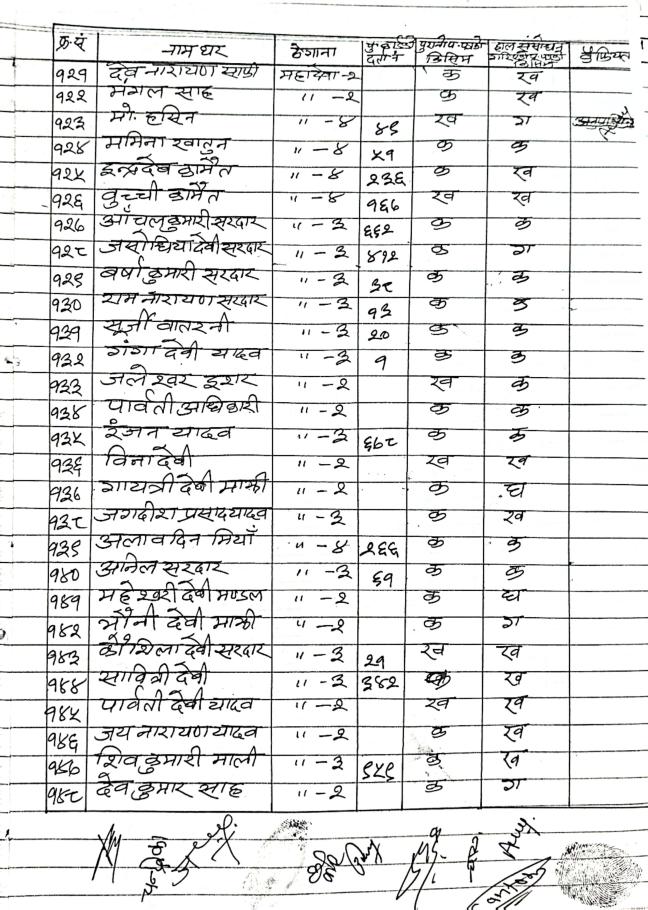 क्र.सं नाम थर ठेगाना किसिम किसिम कैफियत
१२१ देव नारायण साफी महादेवा -२ क ख
१२२ मंगल साह " -२ क ख
१२३ मो. हसिन " -४ ४९ ख ग
१२४ मामिना खातुन " -४ ५१ क क
१२५ इन्द्रदेव कामैत " -४ २३६ क ख
१२६ बुच्ची कामैत " -४ १६७ ख ख
१२७ आँचल कुमारी सरदार " -३ ६६२ क क
१२८ जसोधिया देवी सरदार " -३ ४१२ क ग
१२९ बर्षा कुमारी सरदार " -३ ३८ क क
१३० राम नारायण सरदार " -३ १३ क क
१३१ सूर्जी वातरनी " -३ २० क क
१३२ गंगा देवी यादव " -३ १ क क
१३३ जलेश्वर इशर " -२ ख क
१३४ पार्वती अधिकारी " -२ क क
१३५ रंजन यादव " -३ ६७८ क क
१३६ विना देवी " -२ ख ख
१३७ गायत्री देवी माझी " -२ क घ
१३८ जगदीश प्रसाद यादव " -३ क ख
१३९ अलावदिन मियाँ " -४ २६६ क क
१४० अनिल सरदार " -३ ६१ क क
१४१ महेश्वरी देवी मण्डल " -२ क घ
१४२ मौनी देवी माझी " -२ क ग
१४३ कौशिला देवी सरदार " -३ २१ ख ख
१४४ सावित्री देवी " -३ ३४२ ख
१४५ पार्वती देवी यादव " -२ ख ख
१४६ जय नारायण यादव " -२ क ख
१४७ शिव कुमारी माली " -३ ९५९ क ख
१४८ देव कुमार साह " -२ क ग